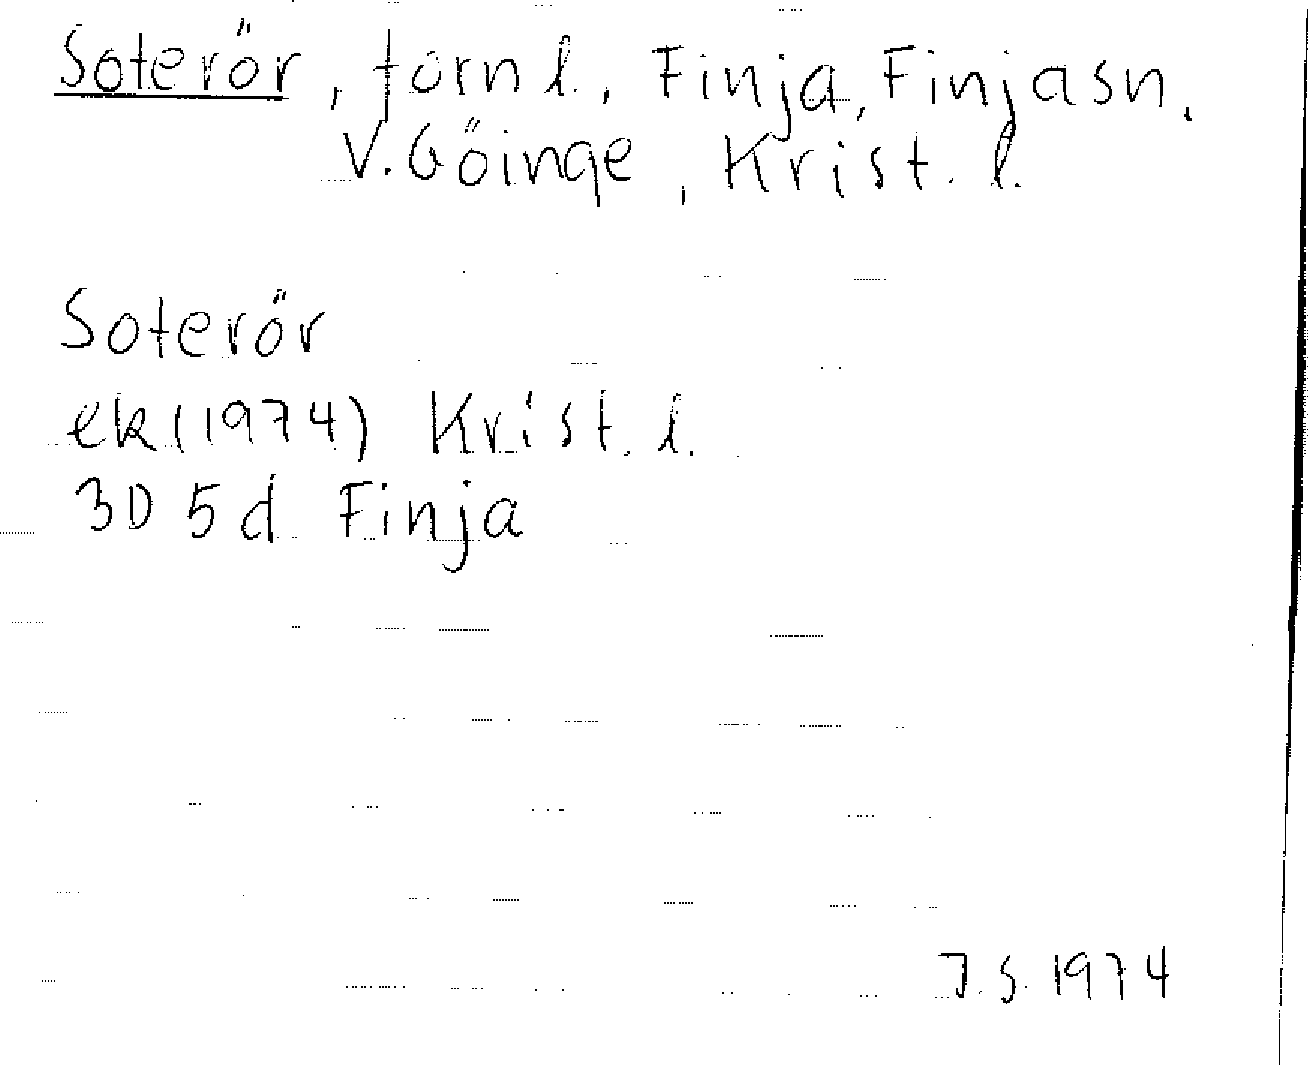 Soterör, fornl., Finja, Finjasn.
V. Göinge, Krist. l.
Soterör
ek (1974) Krist. l.
3D 5d Finja
J.S. 1974